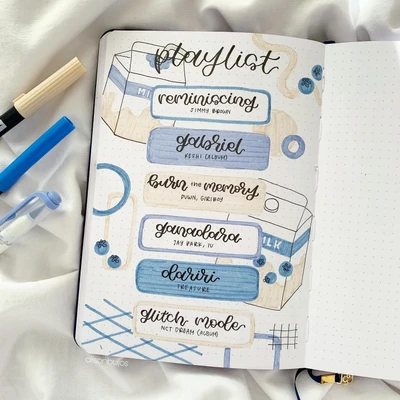 playlist
MI
reminiscing
JIMMY BROWN
gabriel
KESHI (ALBUM)
burn the memory
PUNN, GIRIBOY
ganadara
JAY PARK, IU
MILK
dariri
TREASURE
glitch mode
NCT DREAM (ALBUM)